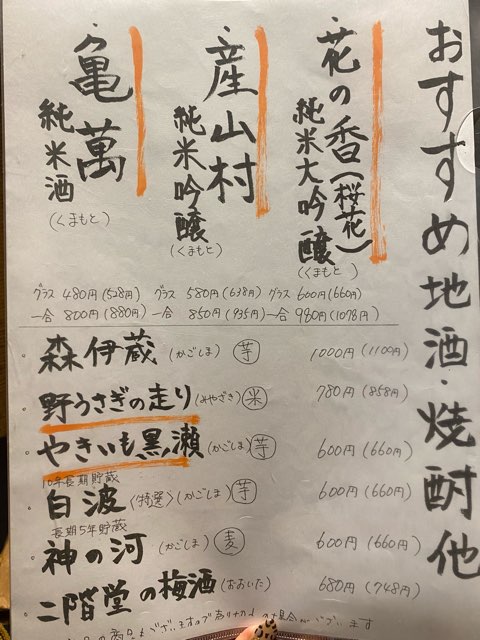 おすすめ地酒・焼酎他
花の香(桜花)
純米大吟醸
(くまもと)
グラス 600円(660円)
一合 980円(1078円)
産山村
純米吟醸
(くまもと)
グラス 580円(638円)
一合 850円(935円)
亀萬
純米酒
(くまもと)
グラス 480円(528円)
一合 800円(880円)
・森伊蔵(かごしま)芋 1000円(1100円)
・野うさぎの走り(みやざき)米 780円(858円)
・やきいも黒瀬(かごしま)芋 600円(660円)
10年長期貯蔵
・白波(特選)(かごしま)芋 600円(660円)
長期5年貯蔵
・神の河(かごしま)麦 600円(660円)
・二階堂の梅酒(おおいた) 680円(748円)